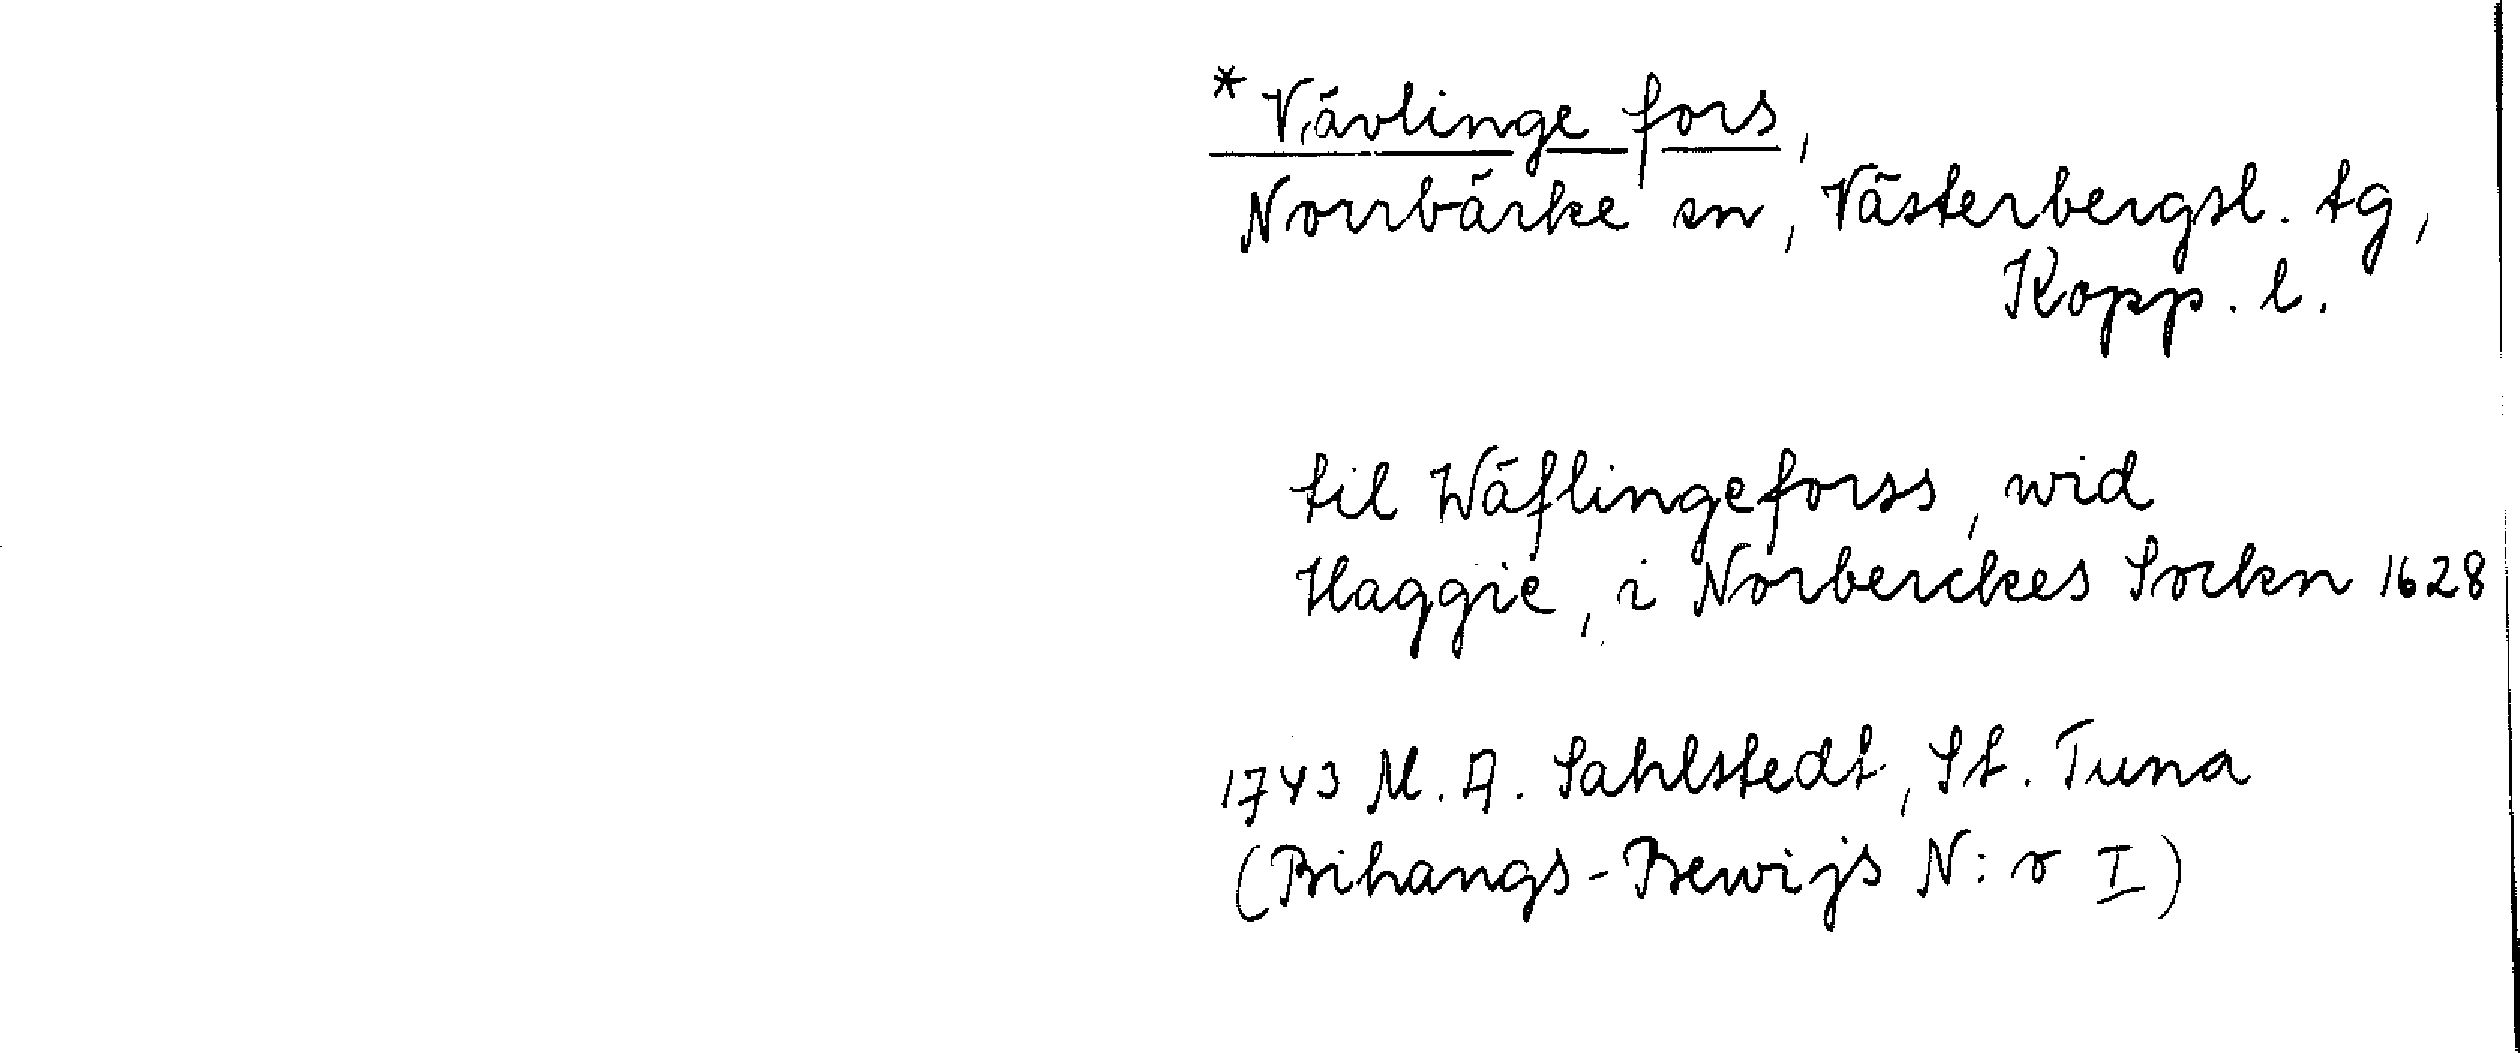 * Vävlinge fors,
Norrbärke sn, Västerbergsl. tg,
Kopp. l.
til Wäflingeforss, wid
Haggie, i Norberckes Sockn 1628
1743 M. A. Sahlstedt, St. Tuna
(Bihangs-Bewijs N:o I)